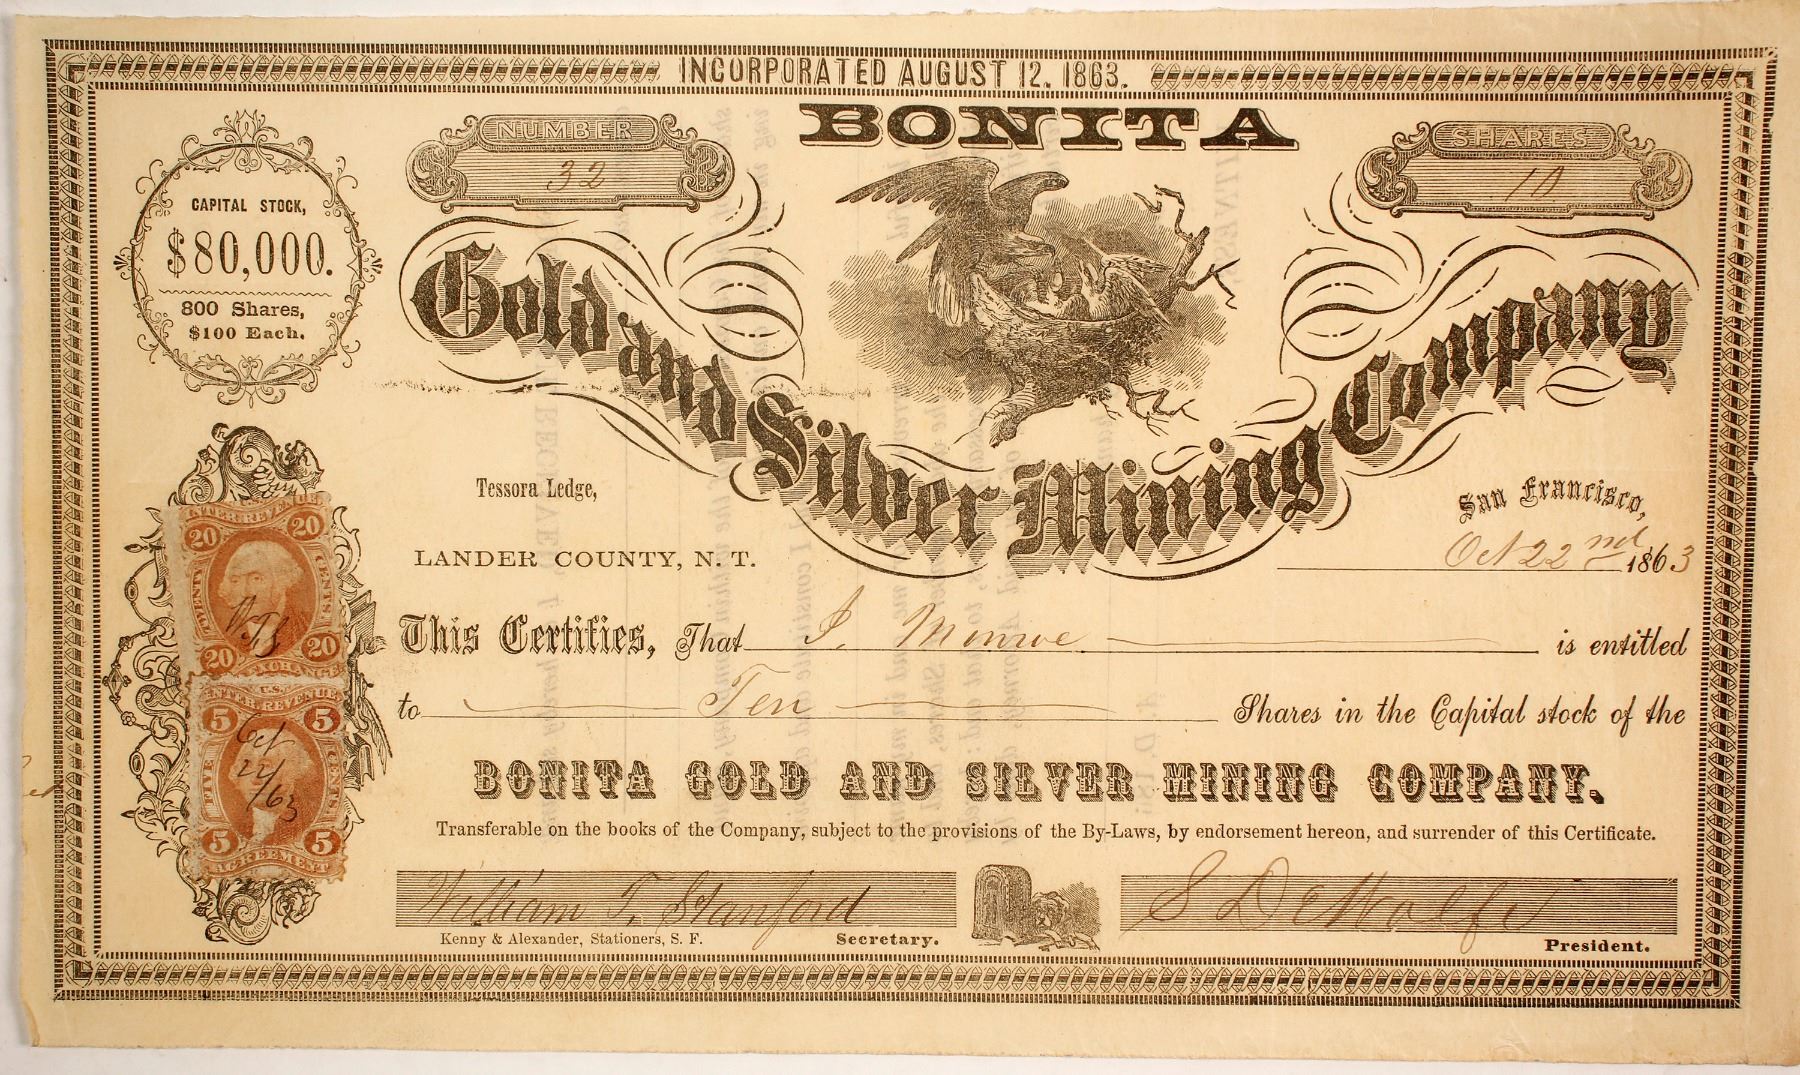 INCORPORATED AUGUST 12. 1863.
BONITA
NUMBER
32
SHARES
10
CAPITAL STOCK,
$80,000.
800 Shares,
$100 Each.
Gold and Silver Mining Company
Tessora Ledge,
LANDER COUNTY, N. T.
San Francisco,
Oct 22nd 1863
This Certifies, That I. Monroe is entitled
to Ten Shares in the Capital stock of the
BONITA GOLD AND SILVER MINING COMPANY.
Transferable on the books of the Company, subject to the provisions of the By-Laws, by endorsement hereon, and surrender of this Certificate.
William T. Stanford
S DeWolfe
Kenny & Alexander, Stationers, S. F.
Secretary.
President.
INTER. REVENUE
20 20
TWENTY CENTS
WTS
20 20
EXCHANGE
U.S.
INTER. REVENUE
5 5
FIVE CENTS
Oct
22/63
5 5
AGREEMENT